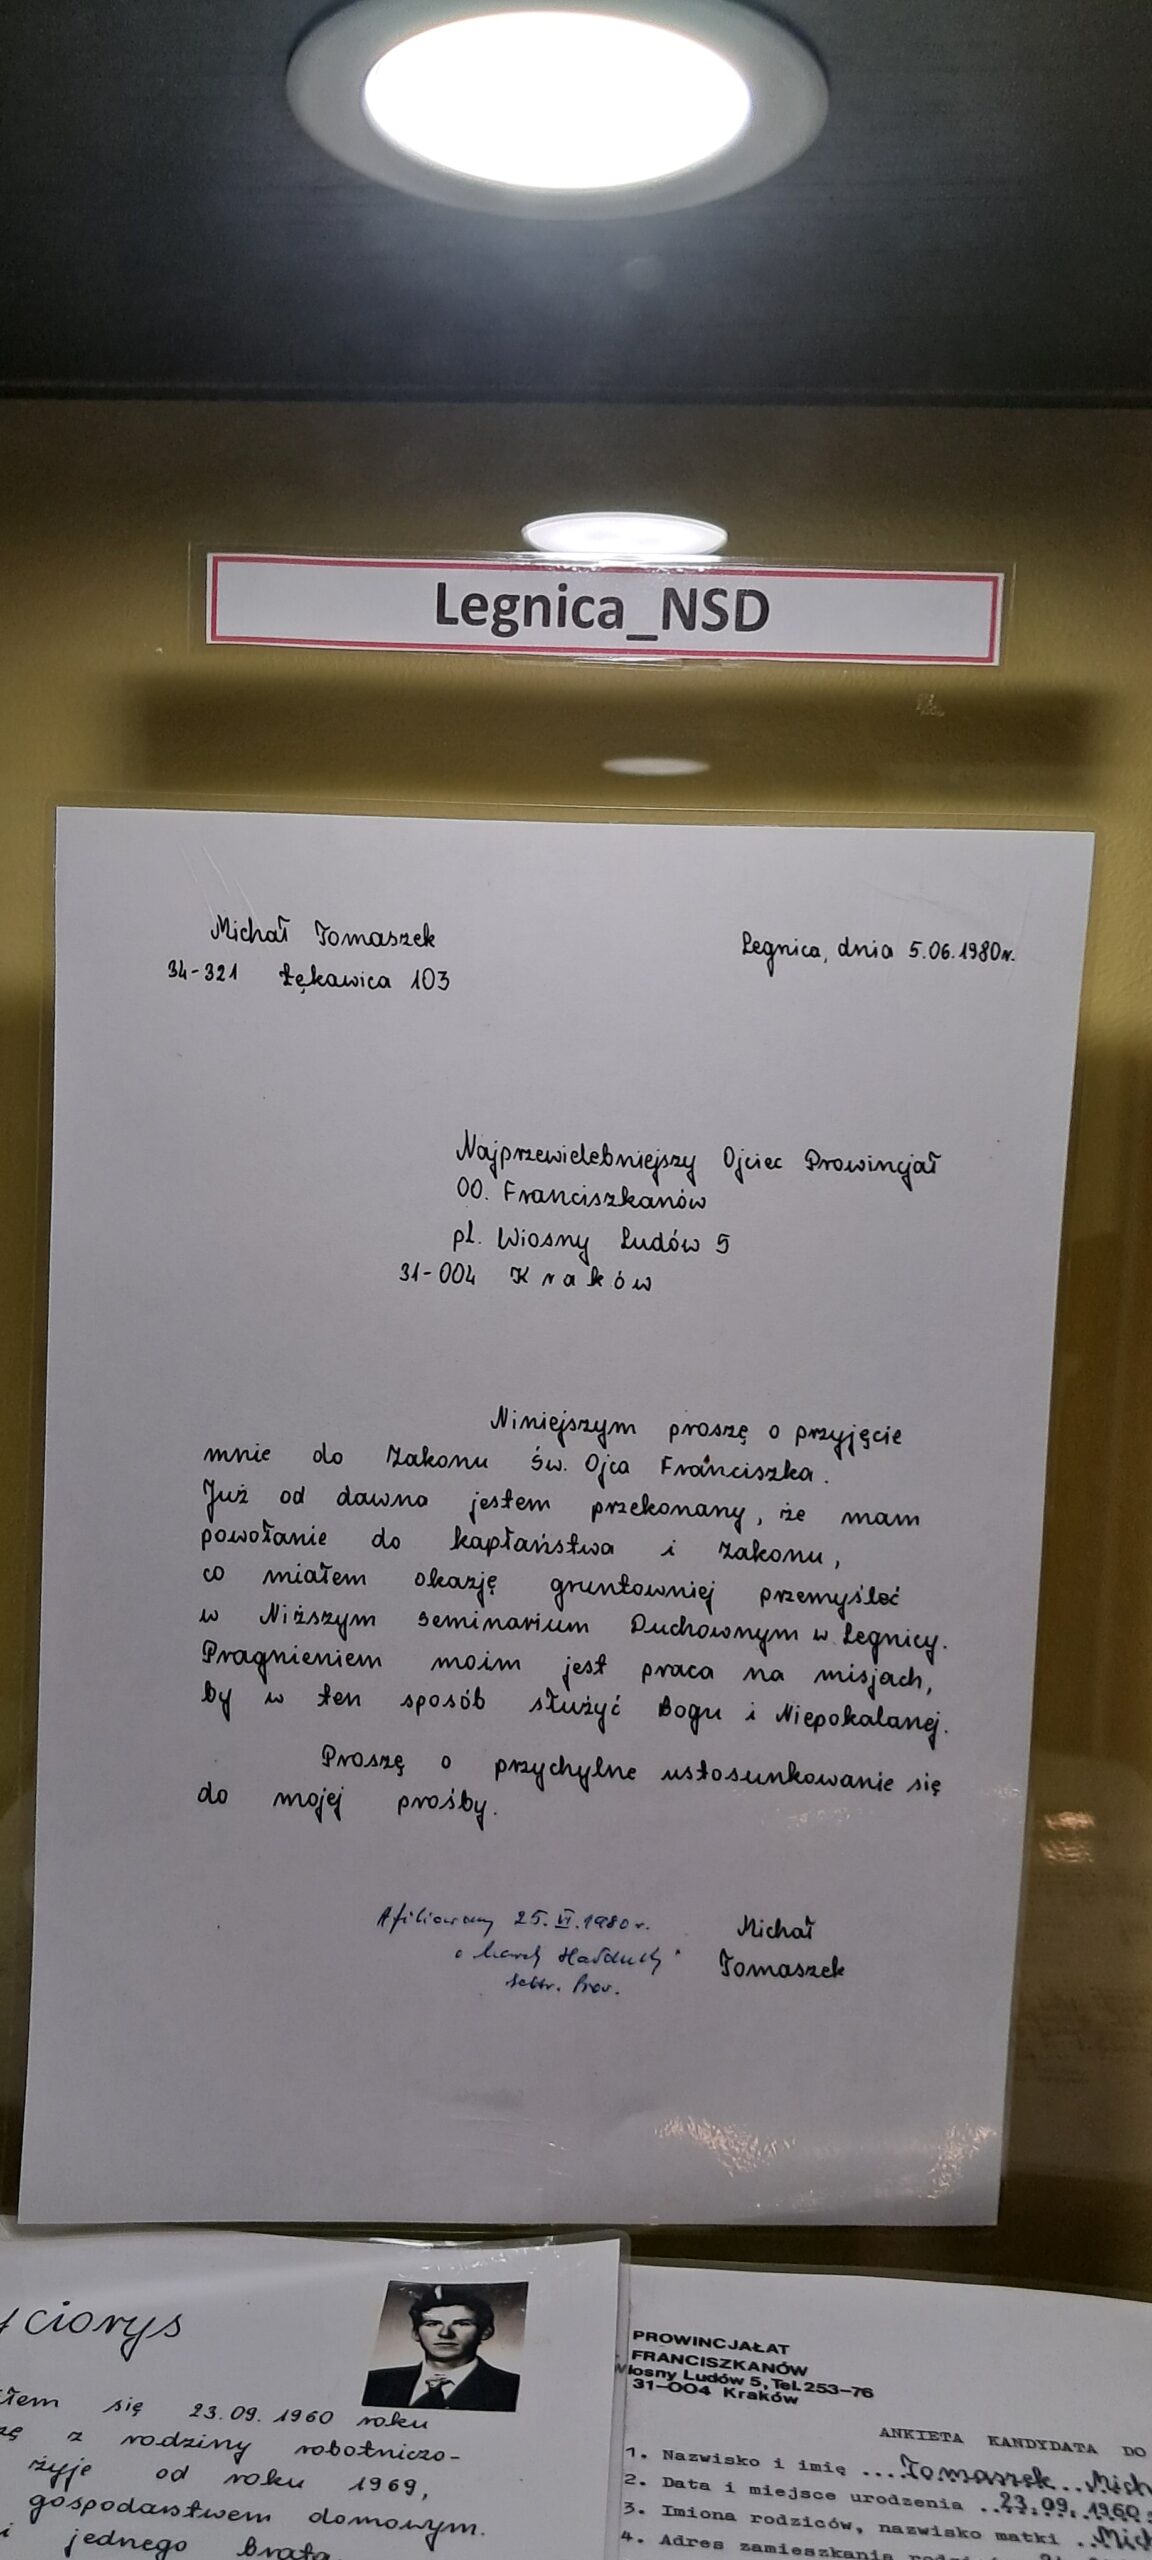 Legnica_NSD
Michał Tomaszek
34-321 Łękawica 103
Legnica, dnia 5.06.1980r.
Najprzewielebniejszy Ojciec Prowincjał
OO. Franciszkanów
pl. Wiosny Ludów 5
31-004 Kraków
Niniejszym proszę o przyjęcie
mnie do Zakonu Św. Ojca Franciszka.
Już od dawna jestem przekonany, że mam
powołanie do kapłaństwa i Zakonu,
co miałem okazję gruntowniej przemyśleć
w Niższym Seminarium Duchownym w Legnicy.
Pragnieniem moim jest praca na misjach,
by w ten sposób służyć Bogu i Niepokalanej.
Proszę o przychylne ustosunkowanie się
do mojej prośby.
Afiliowany 25.VI.1980r.
sekr. Prow.
Michał
Tomaszek
yciorys
łem się 23.09.1960 roku
zę z rodziny robotniczo-
żyje od roku 1969,
gospodarstwem domowym.
i jednego brata.
PROWINCJAŁAT
FRANCISZKANÓW
Wiosny Ludów 5, Tel. 253-76
31-004 Kraków
ANKIETA KANDYDATA DO
1. Nazwisko i imię ....Tomaszek..Mich
2. Data i miejsce urodzenia ..23.09.1960
3. Imiona rodziców, nazwisko matki ..Mich
4. Adres zamieszkania